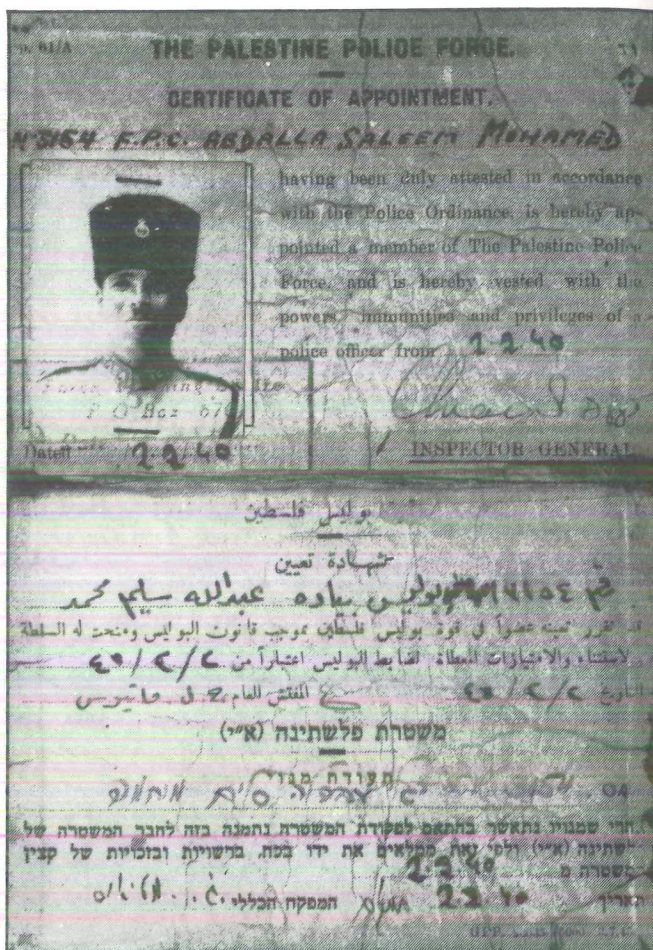 o. 61/A
THE PALESTINE POLICE FORCE.
CERTIFICATE OF APPOINTMENT.
3154 F.P.C. ABDALLA SALEEM MOHAMED
having been duly attested in accordance
with the Police Ordinance, is hereby ap-
pointed a member of The Palestine Police
Force, and is hereby vested with the
powers, immunities and privileges of a
police officer from 2.2.40
P.O. Box
Dated 2.2.40
INSPECTOR GENERAL
بوليس فلسطين
شهادة تعيين
بوليس بياده عبدالله سليم محمد
قد تقرر تعيينه عضواً في قوة بوليس فلسطين بموجب قانون البوليس ومنحت له السلطة
والاستثناء والامتيازات المعطاة لضابط البوليس اعتباراً من ٤٠/٢/٢
التاريخ ٤٠/٢/٢ المفتش العام
משטרת פלשתינה (א״י)
תעודת מנוי
הרי שמנויו נתאשר בהתאם לפקודת המשטרה נתמנה בזה לחבר המשטרה של
פלשתינה (א״י) ולפי זאת ממלאים את ידו בכח, ברשויות ובזכויות של קצין
משטרה מ 2.2.40
תאריך 2.2.40 המפקח הכללי